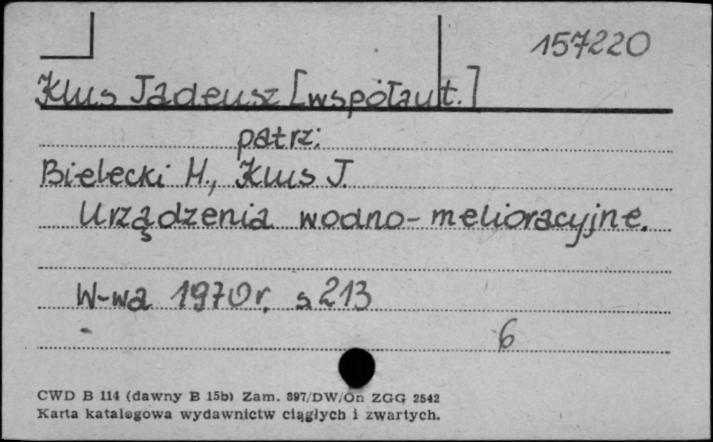 157220
Klus Tadeusz [współaut.]
patrz:
Bielecki H., Klus T.
Urządzenia wodno-melioracyjne.
W-wa 1970 r. s 213
6
CWD B 114 (dawny B 15b) Zam. 897/DW/On ZGG 2542
Karta katalogowa wydawnictw ciągłych i zwartych.